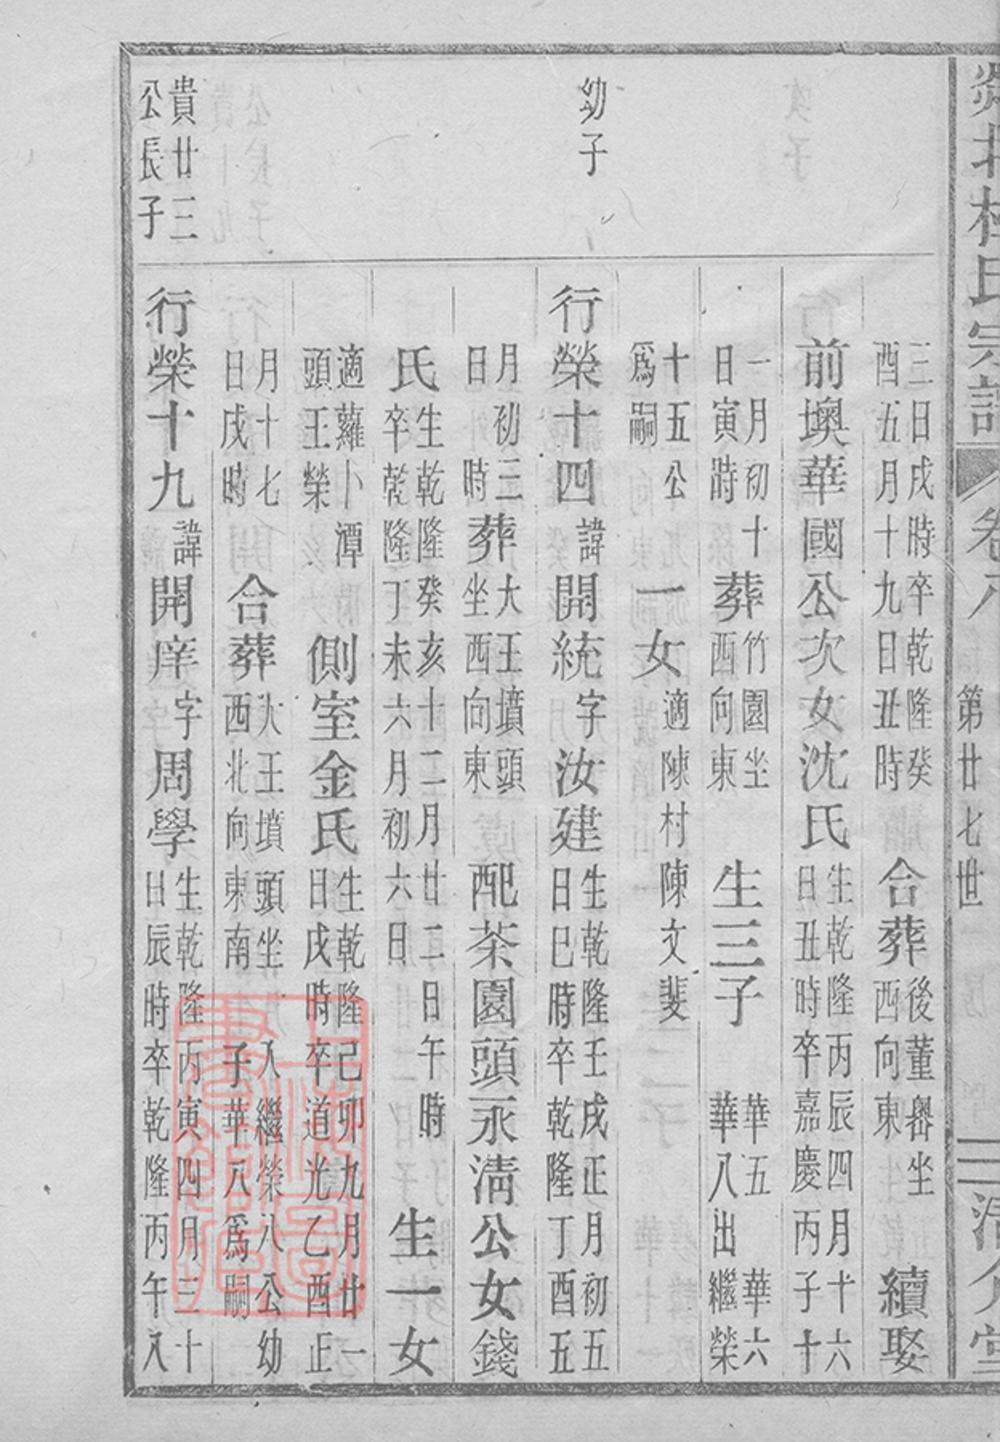 氏宗譜
卷八
第廿七世
三日戌時卒乾隆癸
酉五月十九日丑時
合葬
後董嶴坐
西向東
續娶
前墺華國公次女沈氏
生乾隆丙辰四月十六
日丑時卒嘉慶丙子十
一月初十
日寅時
葬
竹園坐
西向東
生三子
華五 華六
華八出繼榮
十五公
爲嗣
一女
適陳村陳文斐
幼子
行榮十四
諱
開統
字
汝建
生乾隆壬戌正月初五
日巳時卒乾隆丁酉五
月初三
日時
葬
大王墳頭
坐西向東
配茶園頭永清公女錢
氏
生乾隆癸亥十二月廿二日午時
卒乾隆丁未六月初六日
生一女
適蘿卜潭
頭王榮
側室金氏
生乾隆己卯九月廿一
日戌時卒道光乙酉正
月十七
日戌時
合葬
大王墳頭坐
西北向東南
入繼榮八公幼
子華八爲嗣
貴廿三
公長子
行榮十九
諱
開庠
字
周學
生乾隆丙寅四月三十
日辰時卒乾隆丙午八